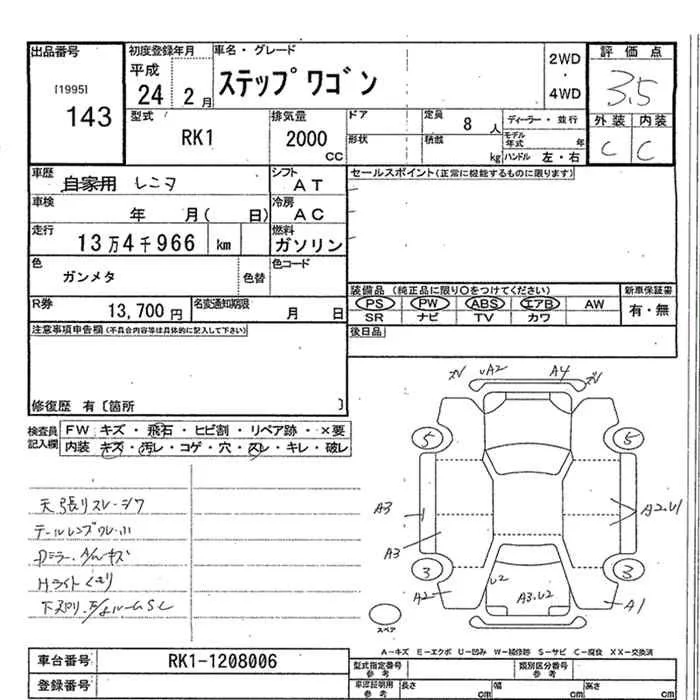 出品番号
[1995]
143
初度登録年月
平成
24 2月
車名・グレード
ステップワゴン
2WD
・
4WD
評価点
3.5
外装 内装
C C
型式
RK1
排気量
2000
CC
ドア
形状
定員
8 人
積載
kg
ディーラー・並行
モデル年式 年
ハンドル 左・右
車歴
自家用 レンタ
シフト
AT
車検
年 月( 日)
冷房
AC
走行
13万4千966 km
燃料
ガソリン
色
ガンメタ
色替
色コード
R券
13,700円
名変通知期限
月 日
セールスポイント(正常に機能するものに限ります)
装備品 (純正品に限り○をつけてください)
PS PW ABS エアB AW
SR ナビ TV カワ
新車保証書
有・無
後日品
注意事項申告欄(不具合内容等は具体的に記入して下さい)
修復歴 有〔箇所 〕
検査員
記入欄
FW キズ・飛石・ヒビ割・リペア跡・×要
内装 キズ・汚レ・コゲ・穴・スレ・キレ・破レ
天張りスレ・シワ
テールレンズワレ・小
Hライトくもり
UA2
A4
5
5
A3
A3
A2.U1
3
3
A2
U2
A3.U2
A1
スペア
A―キズ E―エクボ U―凹み W―補修跡 S―サビ C―腐食 XX―交換済
車台番号
RK1-1208006
登録番号
型式指定番号
参考
類別区分番号
参考
車検証明用
参考
長さ cm
幅 cm
高さ cm